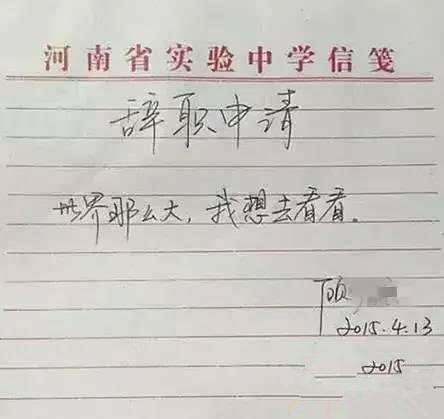 河南省实验中学信笺
辞职申请
世界那么大，我想去看看。
顾
2015.4.13
2015